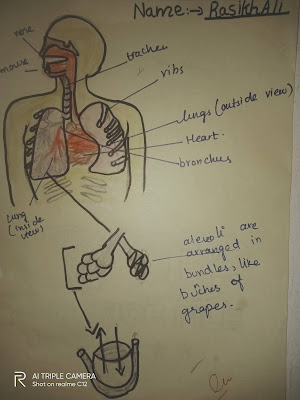 Name:→ Rasikh Ali
nose
mouse
trachea
ribs
lungs (outside view)
Heart.
bronchus
lung
(inside
view)
aleuoli are
arranged in
bundles, like
bu͂ches of
grapes.
AI TRIPLE CAMERA
Shot on realme C12